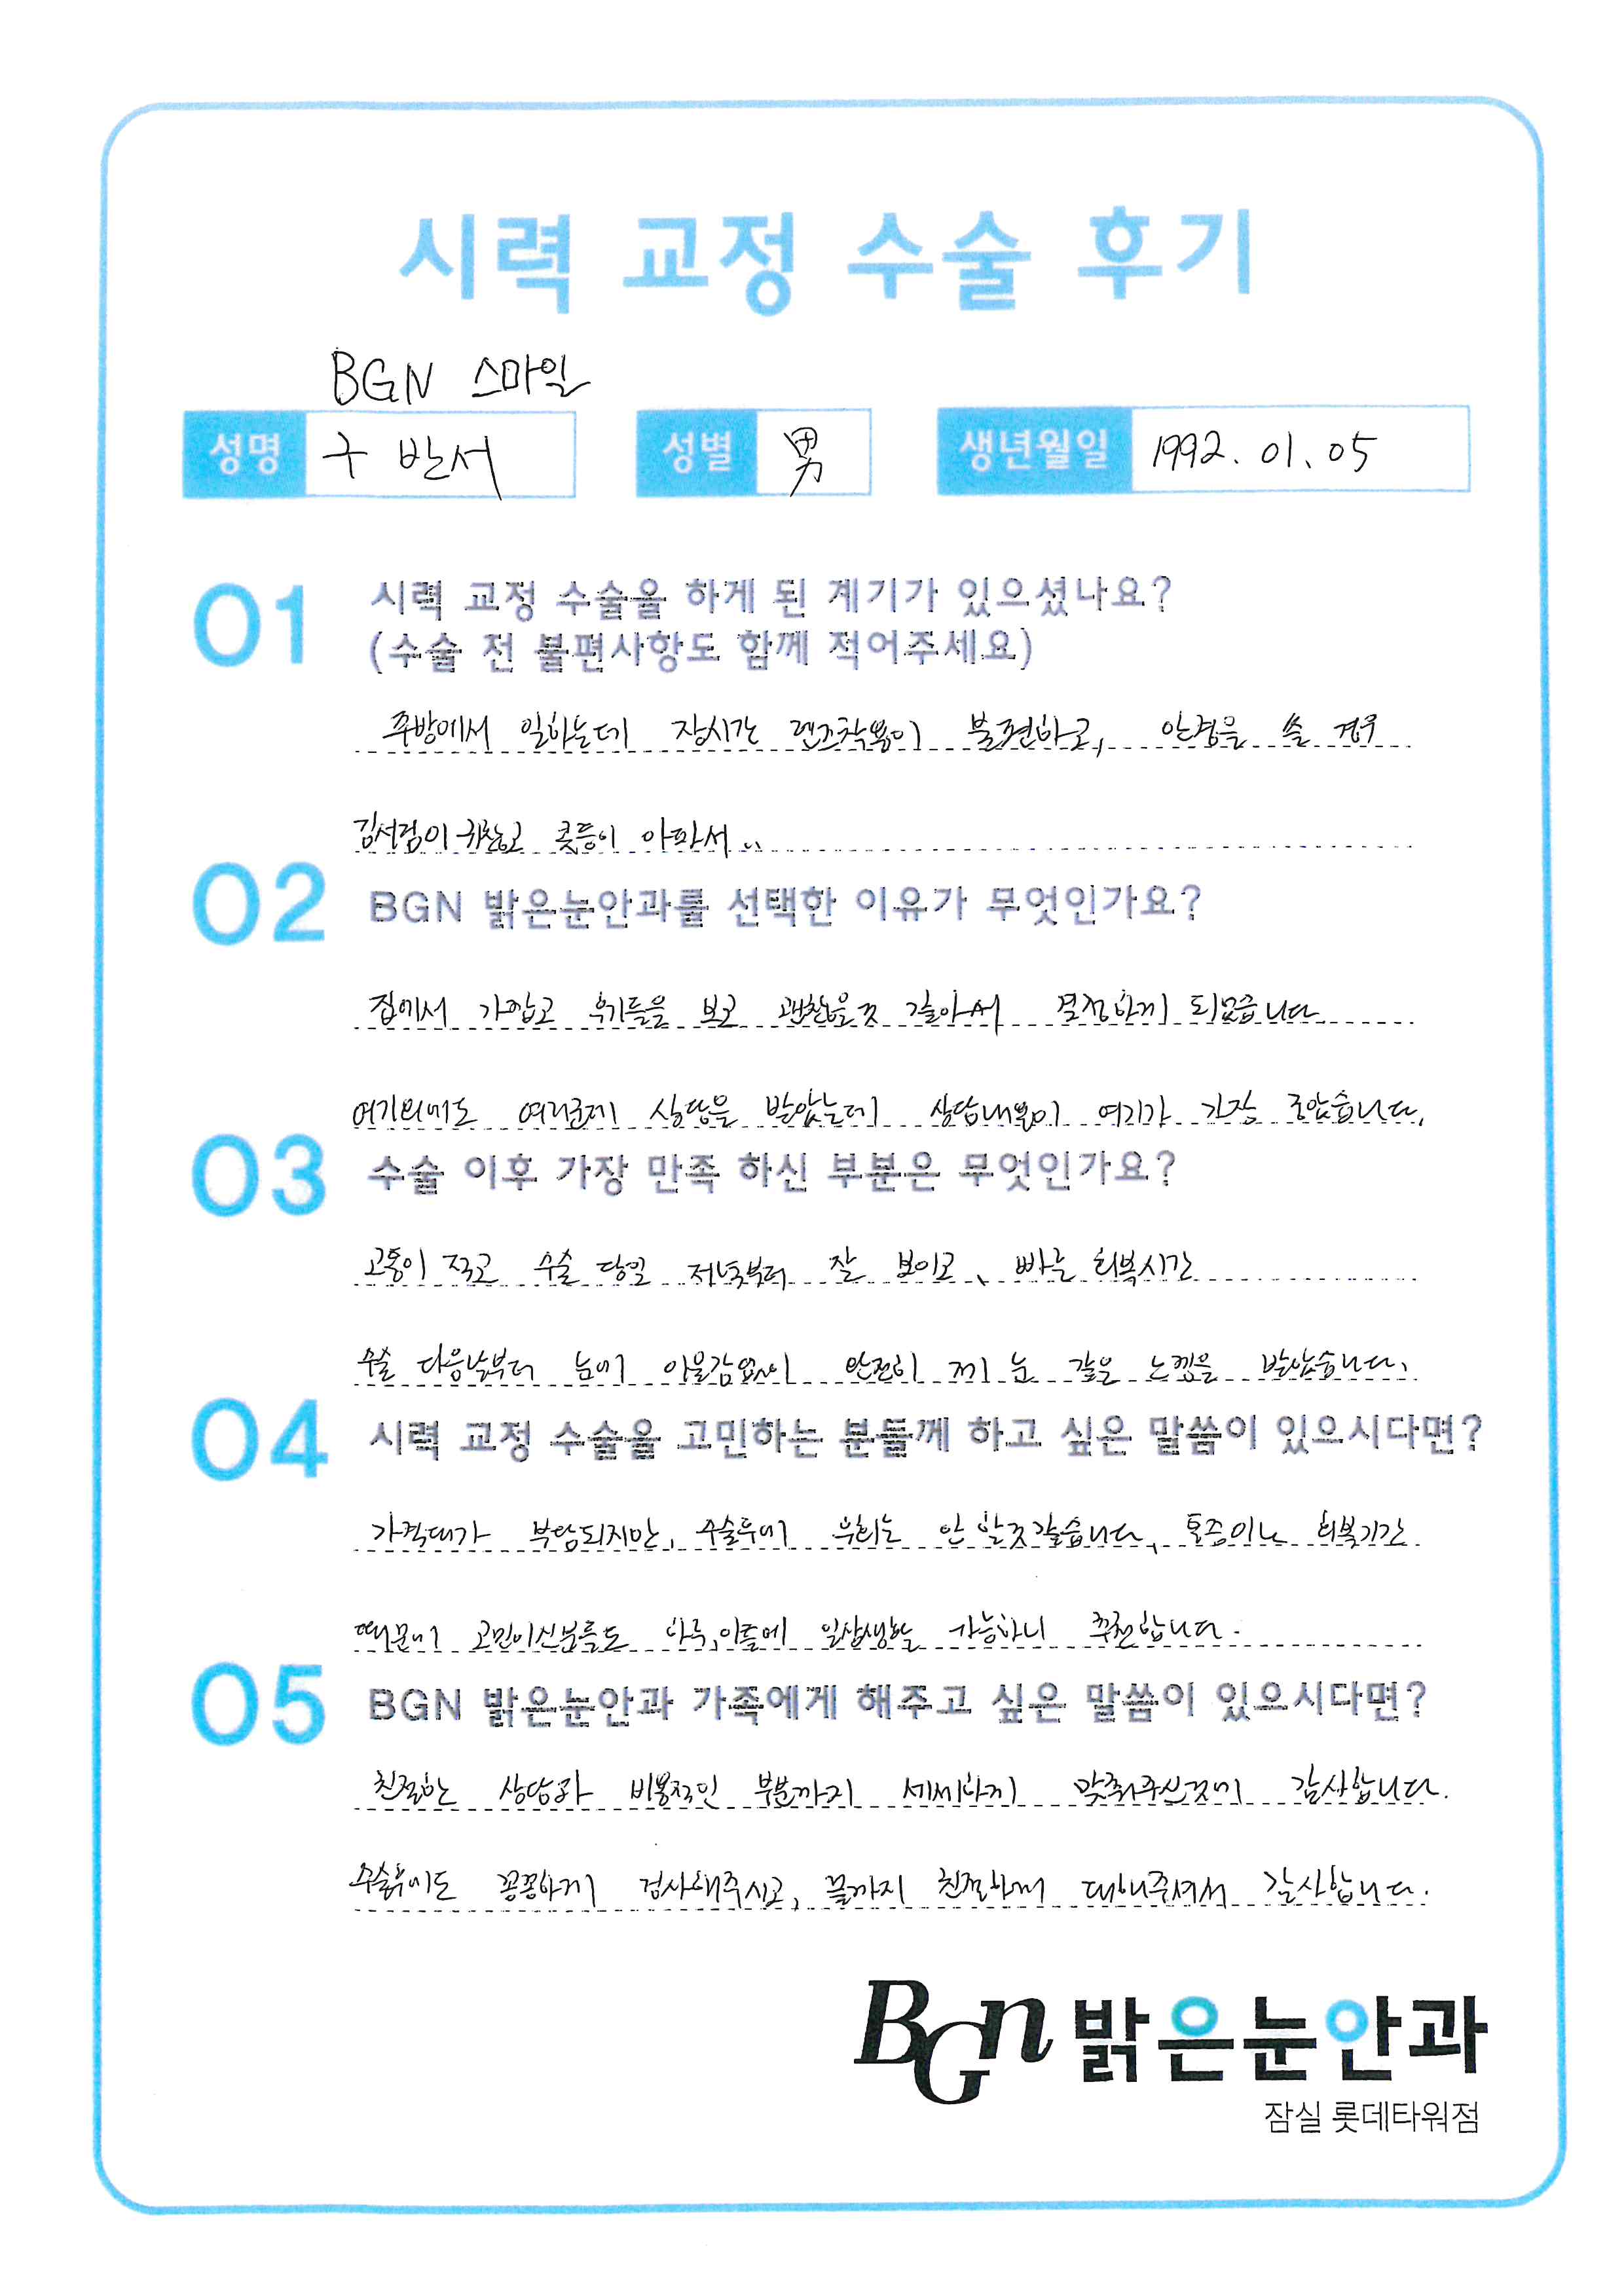 시력 교정 수술 후기
BGN 스마일
성명 구 반서 성별 男 생년월일 1992. 01. 05
01 시력 교정 수술을 하게 된 계기가 있으셨나요?
(수술 전 불편사항도 함께 적어주세요)
주방에서 일하는데 장시간 렌즈착용이 불편하고, 안경을 쓸 경우
김서림이 귀찮고 콧등이 아파서..
02 BGN 밝은눈안과를 선택한 이유가 무엇인가요?
집에서 가깝고 후기들을 보고 괜찮을것 같아서 결정하게 되었습니다.
여기외에도 여러군데 상담을 받았는데 상담내용이 여기가 가장 좋았습니다.
03 수술 이후 가장 만족 하신 부분은 무엇인가요?
고통이 적고 수술 당일 저녁부터 잘 보이고, 빠른 회복시간
수술 다음날부터 눈에 이물감없이 완전히 제 눈 같은 느낌을 받았습니다.
04 시력 교정 수술을 고민하는 분들께 하고 싶은 말씀이 있으시다면?
가격대가 부담되지만, 수술후에 후회는 안 할것같습니다, 통증이나 회복기간
때문에 고민이신분들도 하루,이틀에 일상생활 가능하니 추천합니다.
05 BGN 밝은눈안과 가족에게 해주고 싶은 말씀이 있으시다면?
친절한 상담과 비용적인 부분까지 세세하게 맞춰주신것에 감사합니다.
수술후에도 꼼꼼하게 검사해주시고, 끝까지 친절하게 대해주셔서 감사합니다.
BGn 밝은눈안과
잠실 롯데타워점